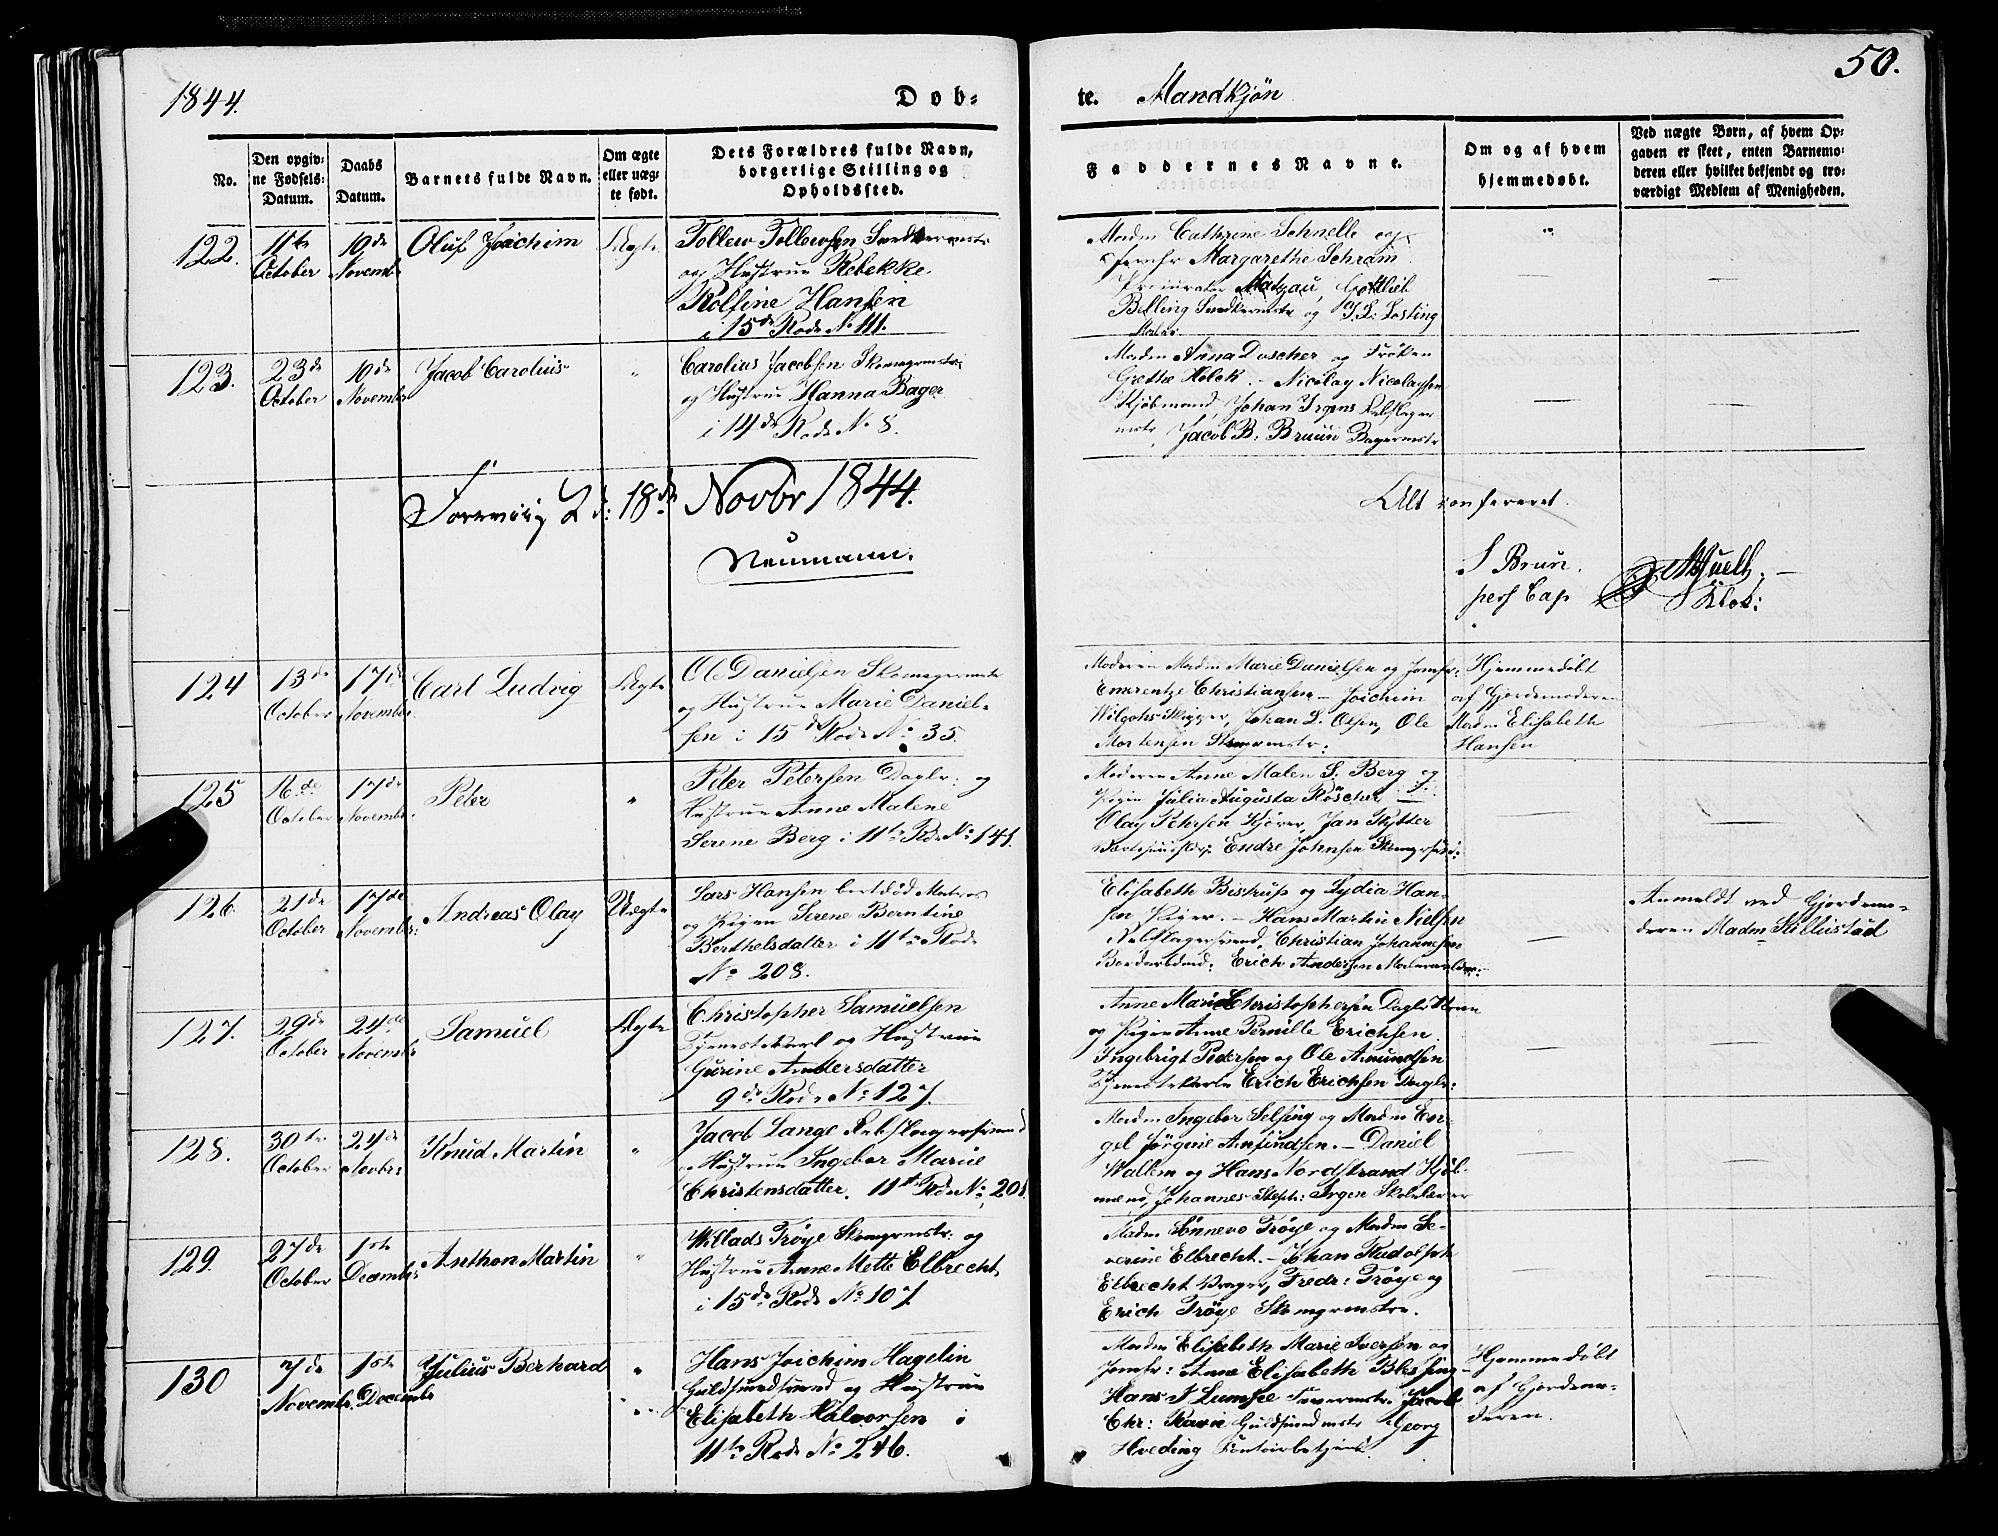 1844.
Døb-
te. Mandkjøn
50.
No.
Den opgiv-
ne Fødsels-
Datum.
Daabs
Datum.
Barnets fulde Navn.
Om ægte
eller uæg-
te født.
Dets Forældres fulde Navn,
borgerlige Stilling og
Opholdssted.
Faddernes Navne.
Om og af hvem
hjemmedøbt.
Ved uægte Børn, af hvem Op-
gaven er skeet, enten Barnemo-
deren eller hvilket bekjendt og tro-
værdigt Medlem af Menigheden.
122.
11te
October
10de
Novembr
Oluf Joachim
Ægte
Tollew Tollewsen Snedkermstr
og Hustrue Rebekke
Rolfine Hansen
i 15de Rode No 111.
Madm Cathrine Schnelle og
Jomfr Margarethe Schram
Procurator, Gottlieb
Billing Snedkermstr og J. L. Losting
Maler
123.
23de
October
10de
November
Jacob Carolius
"
Carolius Jacobsen Skomagermstr
og Hustrue Hanna Bager
i 14de Rode No 8.
Madm Anna Doscher og Frøken
Grethe Holck. – Nicolay Nicolaysen
Kjøbmand, Johan Irgens Rebslager
mstr, Jacob B: Bruun Bagermstr
d: 18de Novbr 1844.
Neumann.
Alt confereret.
J Bruun.
pers Cap
Klok:
124
13de
October
17de
November
Carl Ludvig
Ægte
Ole Danielsen Skomagermstr
og Hustrue Marie Daniel-
sen i 15de Rode No 35.
Moderen Madm Marie Danielsen og Jomfr:
Emrentze Christiansen – Joichim
Skipper, Johan L. Olsen, Ole
Mortensen Skomgrmstr:
Hjemmedøbt
af Gjordemoderen
Madm Elisabeth
Hansen
125
16de
October
17de
Novembr.
Peter
"
Peter Petersen Daglr: og
Hustrue Anne Malene
Serene Berg i 11te Rode No 141.
Moderen Anne Malen S: Berg og
Pigen Julia Augusta Röscher –
Olay Petersen Kjører, Jan Rÿtter
Endre Johnsen Skomgrsvend:
126.
21de
October
17de
Novembr:
Andreas Olay
Uægte
Lars Hansen bortdød Matros
og Pigen Serene Berntine
Berthelsdatter i 11te Rode
No 208.
Elisabeth Bistrup og Lydia Han-
sen Piger. – Hans Martin Nielsen
Rebslagersvend, Christian Johannesen
Erich Andersen
Anmeldt ved Gjordemo-
deren Madm Stillustad
127.
29de
October
24de
Novembr
Samuel
Ægte
Christopher Samuelsen
Tjenestekarl og Hustrue
Gurine Andersdatter
9de Rode No 127.
Anne Marie Christophersen Daglr Kone
og Pigen Anne Pernille Erichsen
Ingebrigt Pedersen og Ole Amundsen
Tjenestekarle Erich Erichsen Daglr:
128.
30te
October
24de
Novbr:
Knud Martin
"
Jacob Lange Rebslagersvend
og Hustrue Ingebor Marie
Christensdatter. 11te Rode No 208
Madm Ingebor Selsing og Madm En-
gel Jörgine Amundsen. – Daniel
Wallem og Hans Nordstrand Kjøb-
mænd, Johannes Steph: Irgen Skolelærer
129.
27de
October
1ste
Decembr:
Anthon Martin
"
Willads Trøye Skomgrmstr: og
Hustrue Anne Mette Elbrecht
i 15de Rode No 107
Madm Sønneve Trøye og Madm Se-
verine Elbrecht. – Johan Rudolph
Elbrecht Bager, Fredr: Trøye og
Erich Trøye Skomgrmstre.
130
7de
Novembr.
1ste
Decembr
Julius Berhard
"
Hans Joichim Hagelin
Guldsmedsvend og Hustrue
Elisabeth Halvorsen i
11te Rode No 246.
Madm Elisabeth Marie Iversen og
Jomfr: Anne Elisabeth Blessing –
Hans J Lumpe Farvermstr Jacob
Chr: Ravn Guldsmedmstr Georg
Hveding Contoirbetjent
Hjemmedøbt
af Gjordemo-
deren.